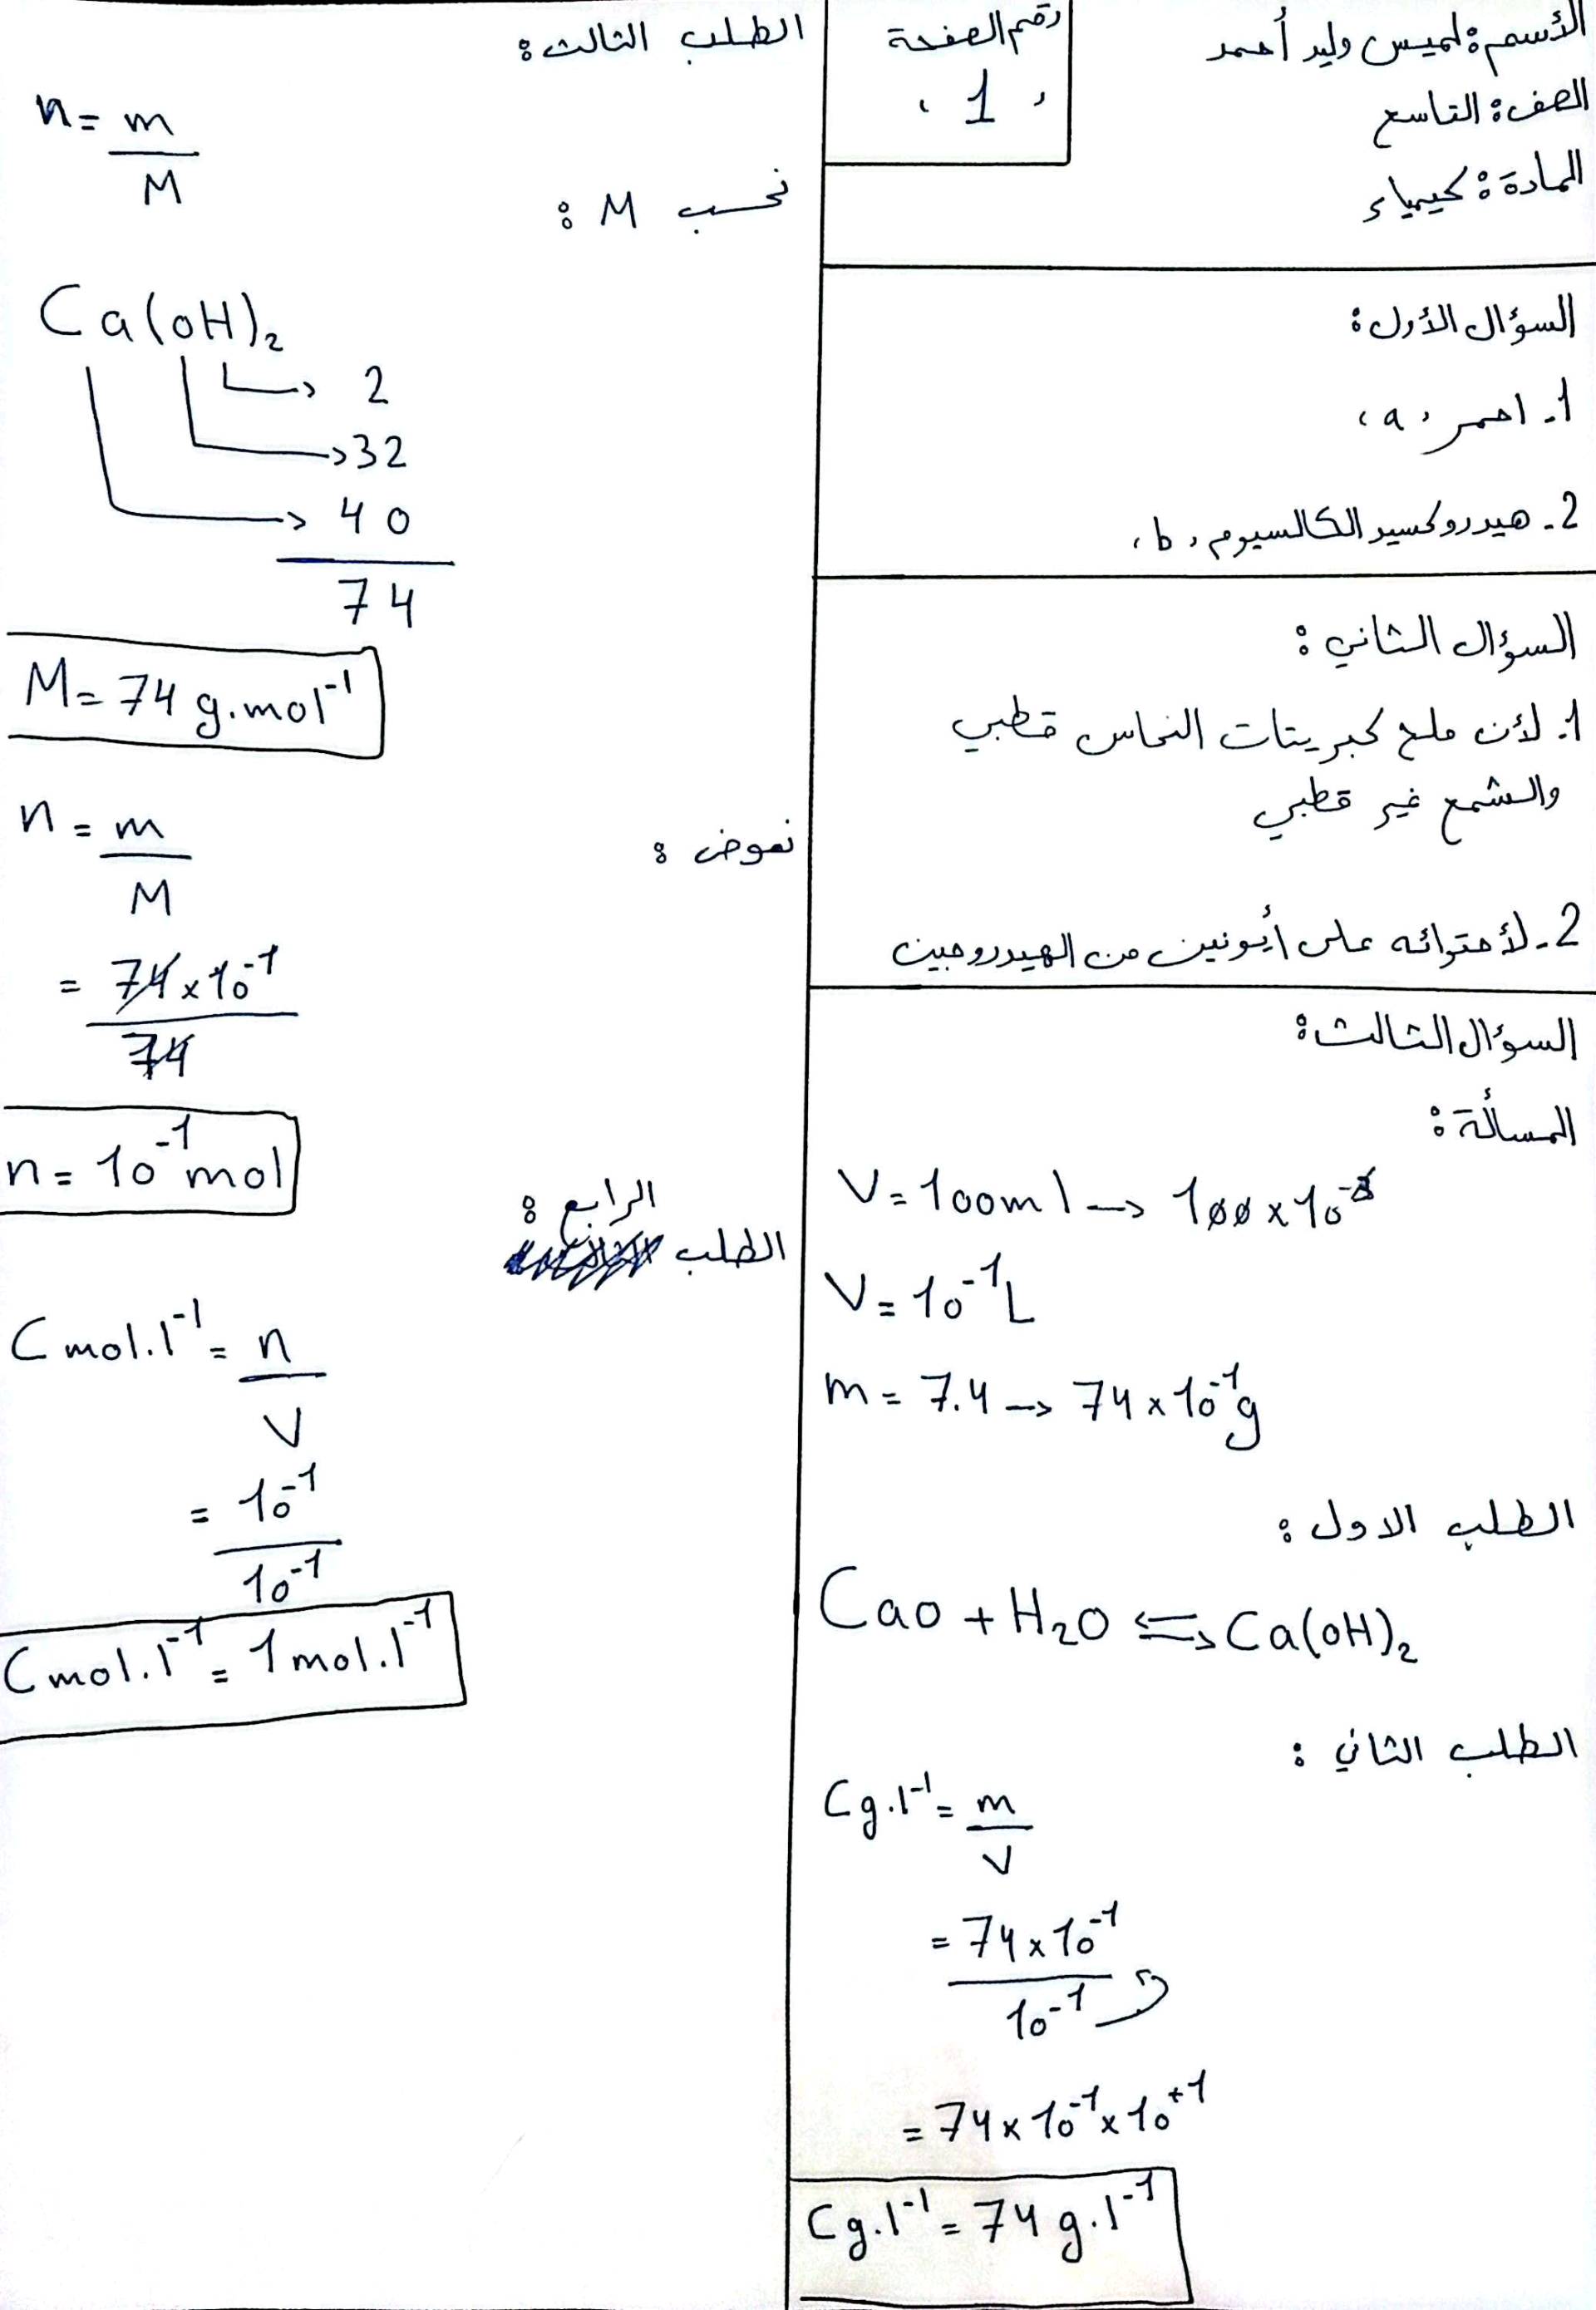 الأسم: لميس وليد أحمد
الصف: التاسع
المادة: كيمياء
رقم الصفحة
، 1 ،
السؤال الأول:
1. احمر ، a ،
2. هيدروكسيد الكالسيوم ، b ،
السؤال الثاني:
1. لأن ملح كبريتات النحاس قطبي
والشمع غير قطبي
2. لأحتوائه على أيونين من الهيدروجين
السؤال الثالث:
المسألة:
V = 100ml → 100 × 10⁻³
V = 10⁻¹ L
m = 7.4 → 74 × 10⁻¹ g
الطلب الاول:
CaO + H₂O ⇌ Ca(OH)₂
الطلب الثاني:
C g.l⁻¹ = m / V
= 74 × 10⁻¹ / 10⁻¹
= 74 × 10⁻¹ × 10⁺¹
C g.l⁻¹ = 74 g.l⁻¹
الطلب الثالث:
n = m / M
نحسب M:
Ca(OH)₂
→ 2
→ 32
→ 40
74
M = 74 g.mol⁻¹
نعوض:
n = m / M
= 74 × 10⁻¹ / 74
n = 10⁻¹ mol
الطلب الرابع:
C mol.l⁻¹ = n / V
= 10⁻¹ / 10⁻¹
C mol.l⁻¹ = 1 mol.l⁻¹